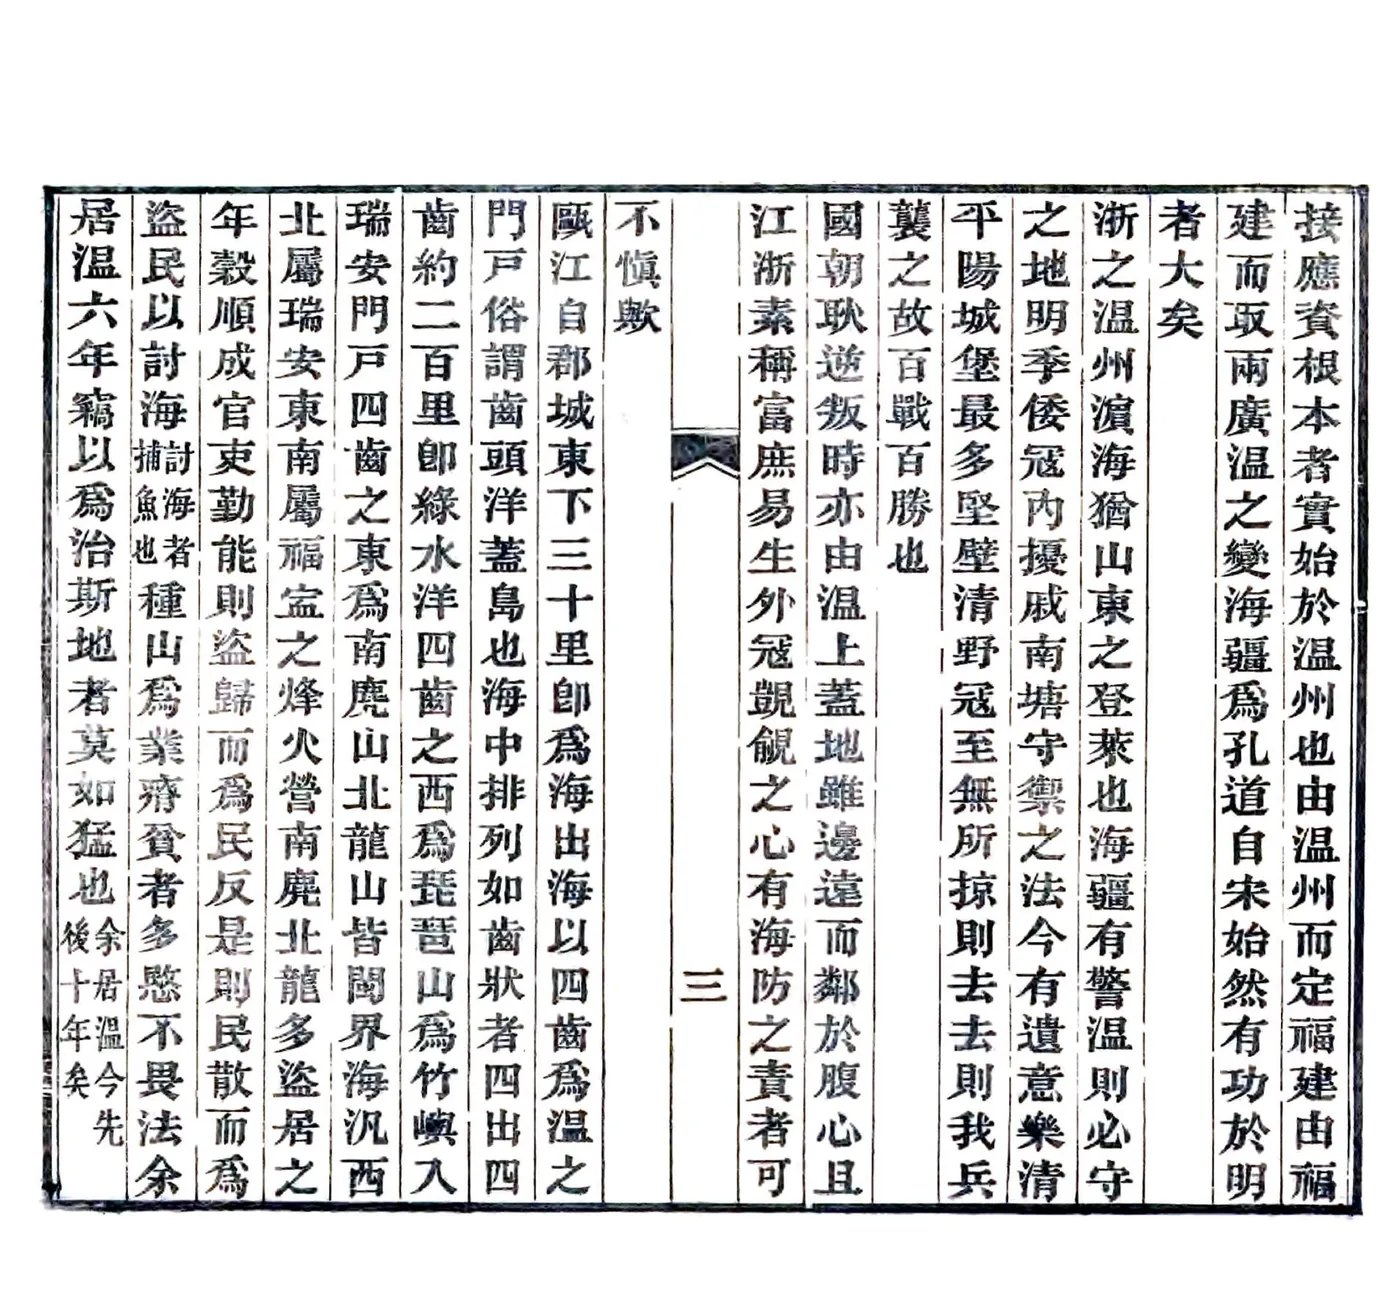 接應資根本者實始於温州也由温州而定福建由福
建而取兩廣温之變海疆爲孔道自宋始然有功於明
者大矣
浙之温州濵海猶山東之登萊也海疆有警温則必守
之地明季倭冦内擾戚南塘守禦之法今有遺意樂清
平陽城堡最多堅壁清野冦至無所掠則去去則我兵
襲之故百戰百勝也
國朝耿逆叛時亦由温上蓋地雖邊遠而鄰於腹心且
江浙素稱富庶易生外冦覬覦之心有海防之責者可
三
不愼歟
甌江自郡城東下三十里卽爲海出海以四齒爲温之
門戸俗謂齒頭洋蓋島也海中排列如齒狀者四出四
齒約二百里卽綠水洋四齒之西爲琵琶山爲竹嶼入
瑞安門戸四齒之東爲南麂山北龍山皆閩界海汎西
北屬瑞安東南屬福寍之烽火營南麂北龍多盜居之
年穀順成官吏勤能則盜歸而爲民反是則民散而爲
盜民以討海討海者捕魚也種山爲業瘠貧者多愍不畏法余
居温六年竊以爲治斯地者莫如猛也余居温今先後十年矣